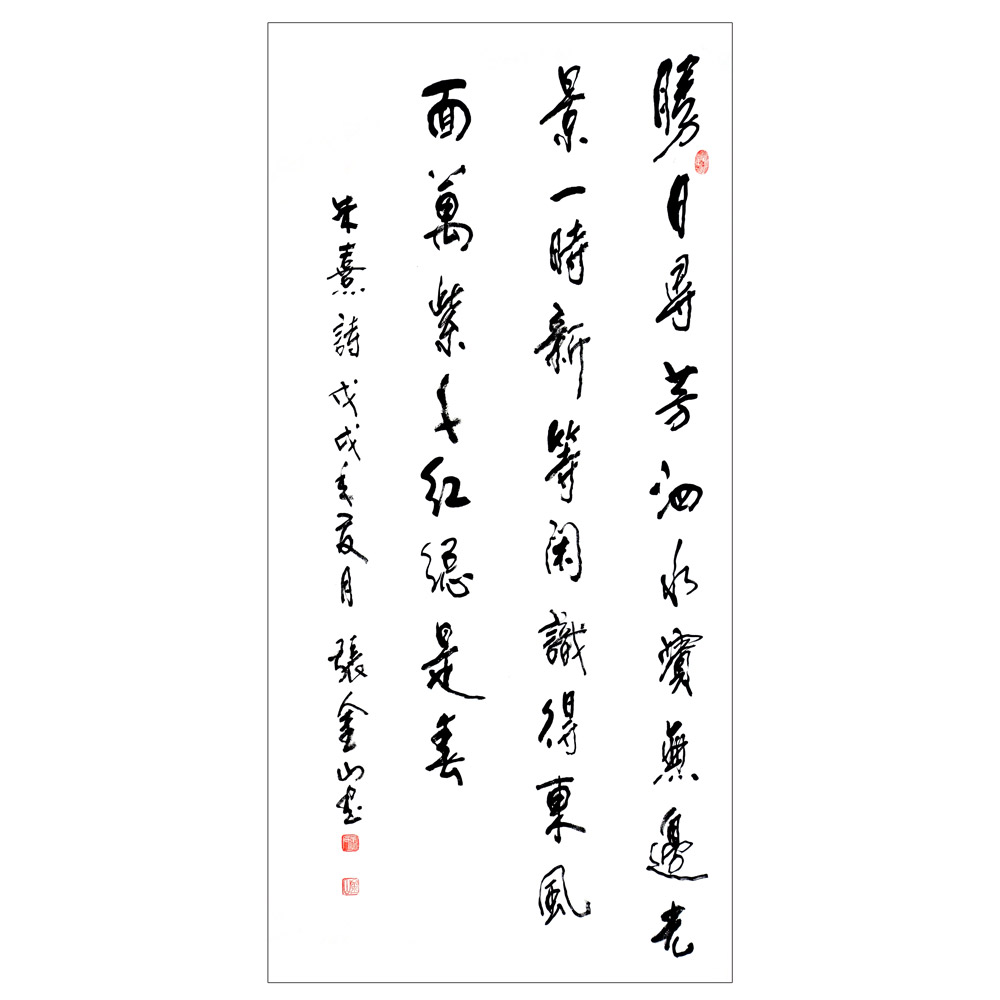 勝日尋芳泗水濱無邊光
景一時新等閑識得東風
面萬紫千紅總是春
朱熹詩戊戌年夏月張金山書